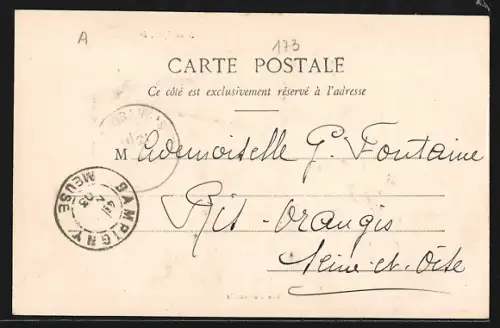 A
173
CARTE POSTALE
Ce côté est exclusivement réservé à l'adresse
Mademoiselle G. Fontaine
Ris-Orangis
Seine-et-Oise
SAMPIGNY
MEUSE